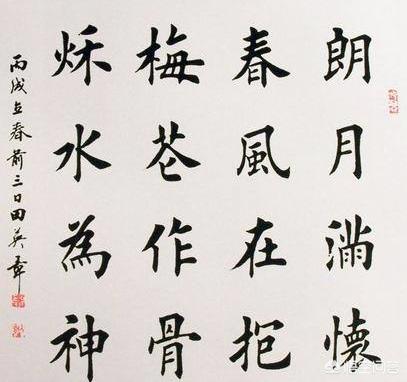 朗月滿懷
春風在抱
梅花作骨
秋水為神
丙戌立春前三日田英章
悟空问答